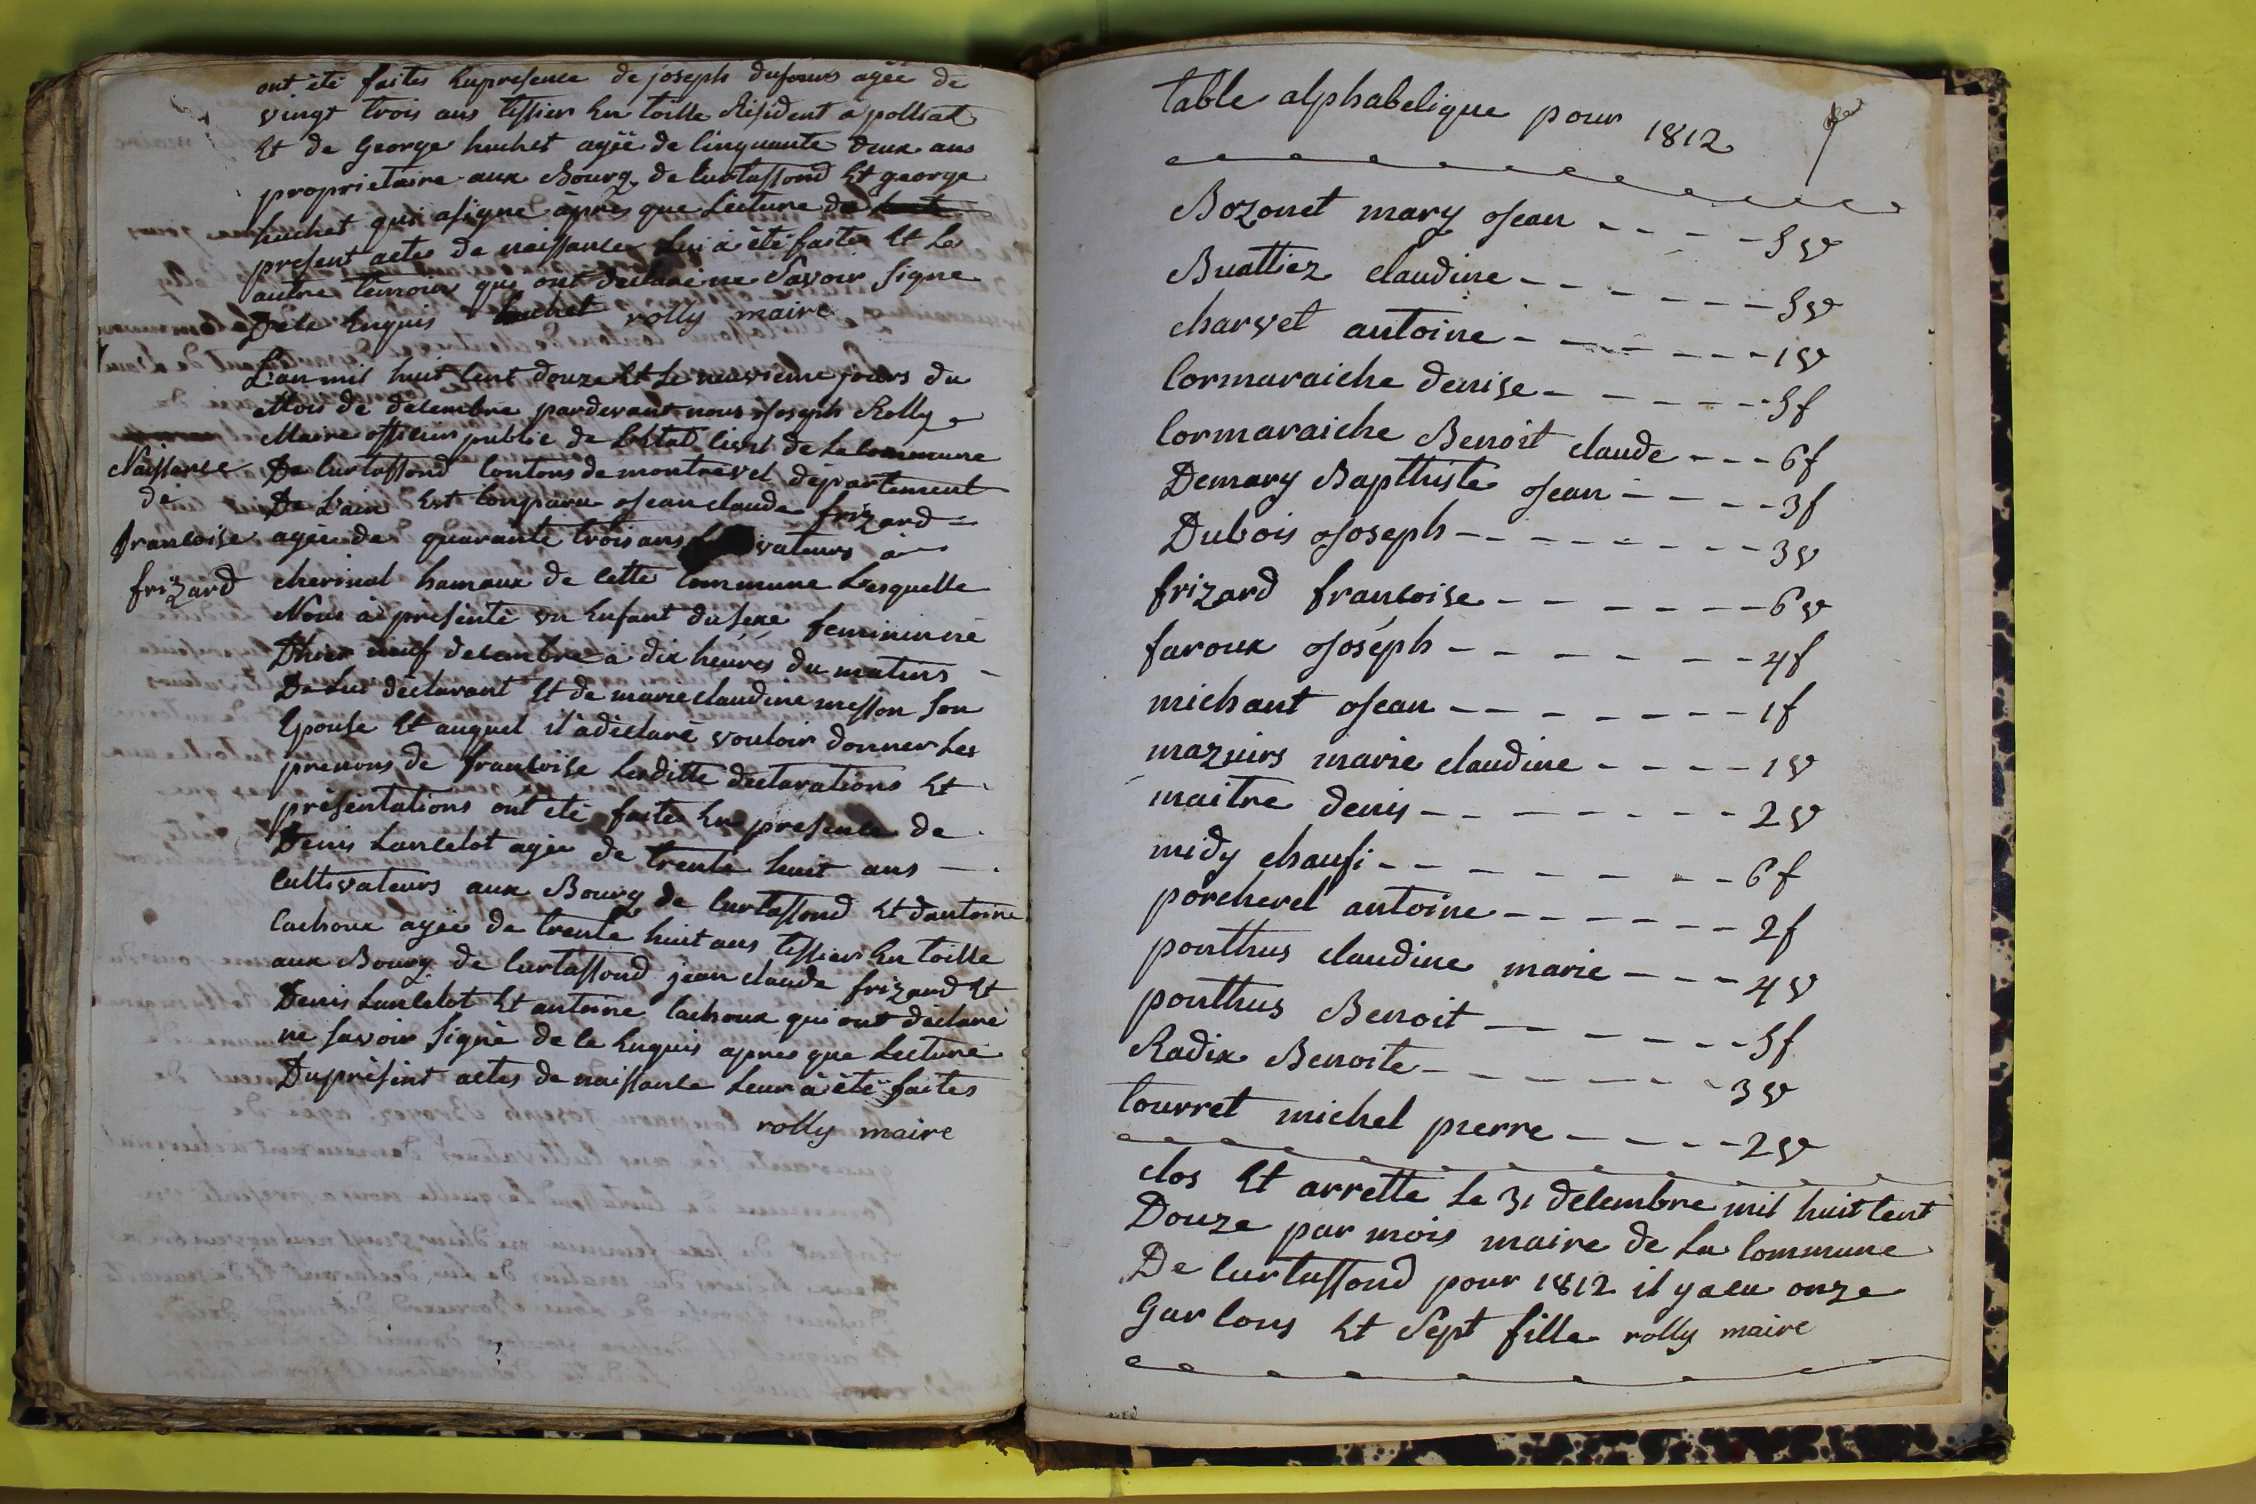 ont été faites En presence de joseph dufour agée de
vingt trois ans tissier En toille Résident a polliat
Et de George huchet agée de Cinquante Deux ans
proprietaire aux Bourg de Curtaffond Et george
huchet qui a signe àprès que Lecture du
present actes de naissance Lui à èté faites Et Le
autre temoin qui ont declaré ne Savoir Signe
De le Enquis huchet rolly maire
L'an mil huit Cent Douze Et Le neuvieme jours du
Mois de decembre pardevant nous Joseph Rolly
Maire officier public de L'Etat Civil de La Commune
De Curtaffond Contons de montrevel département
De L'ain Est Conparu Jean claude frizard
agée de quarante trois ans vateurs à
chevinal hamaux de Cette Commune Lesquelle
Nous à présenté un Enfant du sexe feminin né
D'hier neuf decembre a dix heures du matins
De Lui déclarant Et de marie claudine messon Son
Epouse Et auquel il à déclaré vouloir donner Les
prenons de francoise Lesditte déclarations Et
présentations ont eté faite En presence de
Denis Lancelot agée de trente huit ans
Cultivateurs aux Bourg de Curtaffond Et d'antoine
Cachoux agée de trente huit ans tissier En toille
aux Bourg de Curtaffond jean claude frizard Et
Denis Lancelot Et antoine Cachoux qui ont déclaré
ne savoir signé de le Enquis apres que Lecture
Du présent actes de naissance Leur à èté faites
rolly maire
Naissance
de
francoise
frizard
table alphabetique pour 1812
Bozonet mary Jean - - - - 5 v
Buattiez claudine - - - - - - 5 v
charvet antoine - - - - - - - 1 v
Cormaraiche denise - - - - - - 5 f
Cormaraiche Benoit claude - - - 6 f
Demary Bapttiste Jean - - - - 3 f
Dubois Joseph - - - - - - - - 3 v
frizard francoise - - - - - - - 6 v
faroux Joséph - - - - - - - 4 f
michant Jean - - - - - - - - 1 f
mazuirs marie claudine - - - - 1 v
maitre denis - - - - - - - - 2 v
midy chansi - - - - - - - - 6 f
porcherel antoine - - - - - - - 2 f
ponthus claudine marie - - - - 4 v
ponthus Benoit - - - - - - - 5 f
Radix Benoite - - - - - - - 3 v
tourret michel pierre - - - - - 2 v
clos Et arrette Le 31 decembre mil huit Cent
Douze par mois maire de La Commune
De Curtaffond pour 1812 il y a eu onze
Garcons Et Sept fille rolly maire